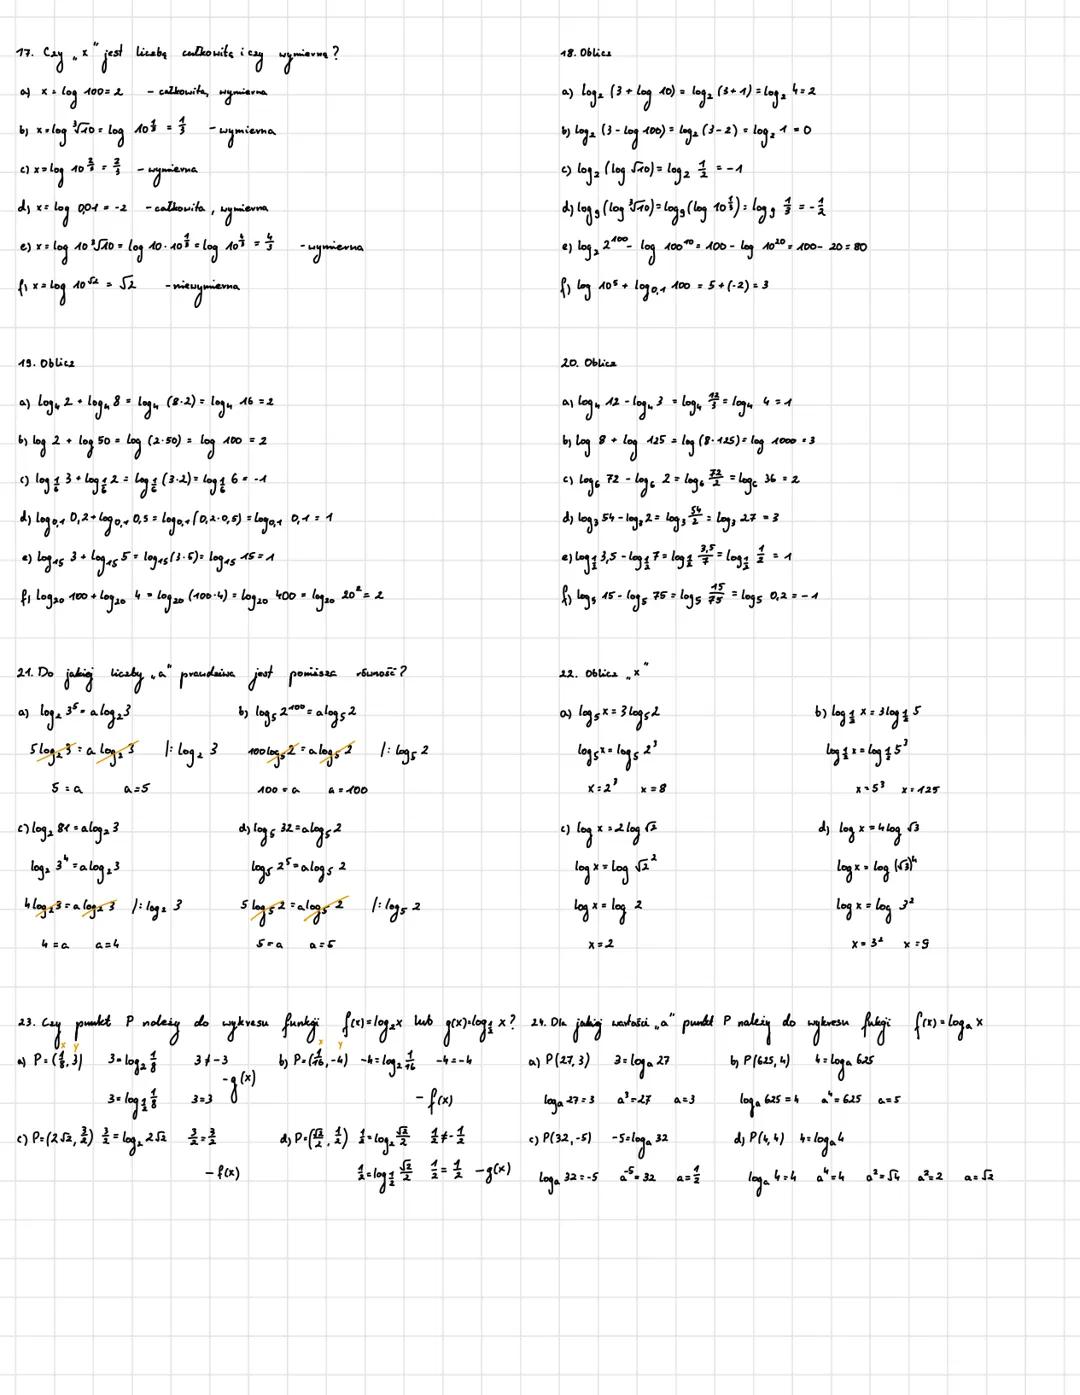 17. Czy „x" jest liczbą całkowitą i czy wymierną?
a) x = log 100 = 2 - całkowita, wymierna
b) x = log ∛10 = log 10^(1/3) = 1/3 - wymierna
c) x = log 10^(2/3) = 2/3 - wymierna
d) x = log 0,01 = -2 - całkowita, wymierna
e) x = log 10 ∛10 = log 10 · 10^(1/3) = log 10^(4/3) = 4/3 - wymierna
f) x = log 10^√2 = √2 - niewymierna
18. Oblicz
a) log₂ (3 + log 10) = log₂ (3 + 1) = log₂ 4 = 2
b) log₂ (3 - log 100) = log₂ (3 - 2) = log₂ 1 = 0
c) log₂ (log √10) = log₂ 1/2 = -1
d) log₉ (log ∛10) = log₉ (log 10^(1/3)) = log₉ 1/3 = -1/2
e) log₂ 2^100 - log 100^10 = 100 - log 10^20 = 100 - 20 = 80
f) log 10⁵ + log₀,₁ 100 = 5 + (-2) = 3
19. Oblicz
a) log₄ 2 + log₄ 8 = log₄ (8·2) = log₄ 16 = 2
b) log 2 + log 50 = log (2·50) = log 100 = 2
c) log_(1/6) 3 + log_(1/6) 2 = log_(1/6) (3·2) = log_(1/6) 6 = -1
d) log₀,₁ 0,2 + log₀,₁ 0,5 = log₀,₁ (0,2·0,5) = log₀,₁ 0,1 = 1
e) log₁₅ 3 + log₁₅ 5 = log₁₅ (3·5) = log₁₅ 15 = 1
f) log₂₀ 100 + log₂₀ 4 = log₂₀ (100·4) = log₂₀ 400 = log₂₀ 20² = 2
20. Oblicz
a) log₄ 12 - log₄ 3 = log₄ 12/3 = log₄ 4 = 1
b) log 8 + log 125 = log (8·125) = log 1000 = 3
c) log₆ 72 - log₆ 2 = log₆ 72/2 = log₆ 36 = 2
d) log₃ 54 - log₃ 2 = log₃ 54/2 = log₃ 27 = 3
e) log_(1/2) 3,5 - log_(1/2) 7 = log_(1/2) 3,5/7 = log_(1/2) 1/2 = 1
f) log₅ 15 - log₅ 75 = log₅ 15/75 = log₅ 0,2 = -1
21. Do jakiej liczby „a" prawdziwa jest poniższa równość?
a) log₂ 3⁵ = a log₂ 3
5 log₂ 3 = a log₂ 3 /: log₂ 3
5 = a a = 5
b) log₅ 2^100 = a log₅ 2
100 log₅ 2 = a log₅ 2 /: log₅ 2
100 = a a = 100
c) log₂ 81 = a log₂ 3
log₂ 3⁴ = a log₂ 3
4 log₂ 3 = a log₂ 3 /: log₂ 3
4 = a a = 4
d) log₅ 32 = a log₅ 2
log₅ 2⁵ = a log₅ 2
5 log₅ 2 = a log₅ 2 /: log₅ 2
5 = a a = 5
22. Oblicz „x"
a) log₅ x = 3 log₅ 2
log₅ x = log₅ 2³
x = 2³ x = 8
b) log_(1/2) x = 3 log_(1/2) 5
log_(1/2) x = log_(1/2) 5³
x = 5³ x = 125
c) log x = 2 log √2
log x = log √2²
log x = log 2
x = 2
d) log x = 4 log √3
log x = log (√3)⁴
log x = log 3²
x = 3² x = 9
23. Czy punkt P należy do wykresu funkcji f(x) = log₂ x lub g(x) = log_(1/2) x?
x y
a) P = (1/8, 3) 3 = log₂ 1/8 3 ≠ -3
3 = log_(1/2) 1/8 3 = 3 - g(x)
x y
b) P = (1/16, -4) -4 = log₂ 1/16 -4 = -4
- f(x)
c) P = (2√2, 3/2) 3/2 = log₂ 2√2 3/2 = 3/2
- f(x)
d) P = (√2/2, 1/2) 1/2 = log₂ √2/2 1/2 ≠ -1/2
1/2 = log_(1/2) √2/2 1/2 = 1/2 - g(x)
24. Dla jakiej wartości „a" punkt P należy do wykresu fukcji f(x) = logₐ x
a) P(27, 3) 3 = logₐ 27
logₐ 27 = 3 a³ = 27 a = 3
b) P(625, 4) 4 = logₐ 625
logₐ 625 = 4 a⁴ = 625 a = 5
c) P(32, -5) -5 = logₐ 32
logₐ 32 = -5 a⁻⁵ = 32 a = 1/2
d) P(4, 4) 4 = logₐ 4
logₐ 4 = 4 a⁴ = 4 a² = √4 a² = 2 a = √2